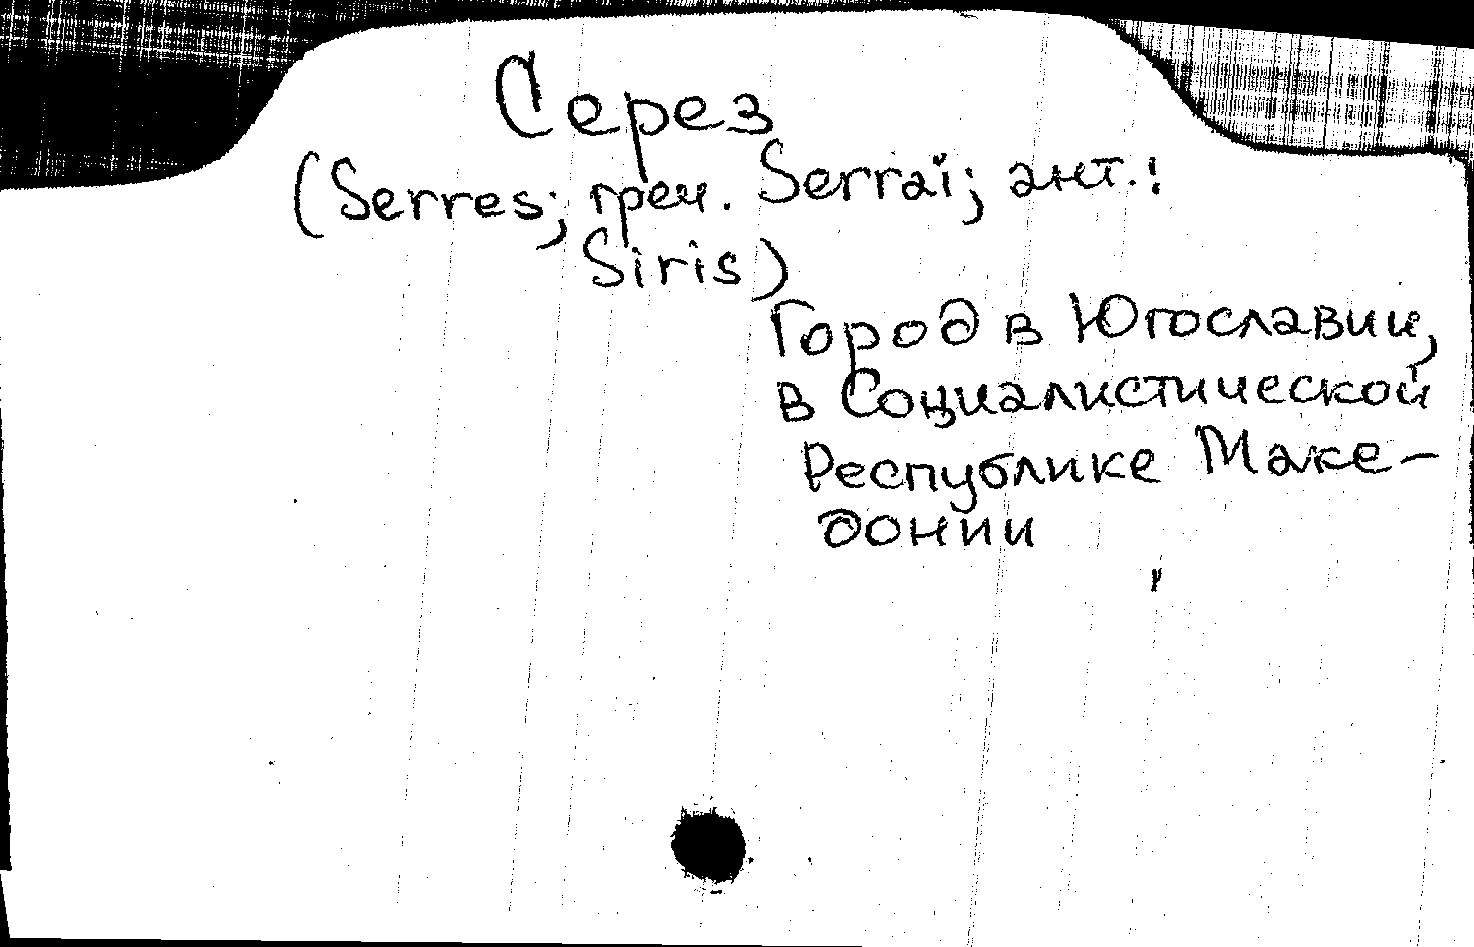 Серез
(Serres; греч. Serraï; ант.:
Siris)
Город в Югославии,
в Социалистической
Республике Маке-
донии